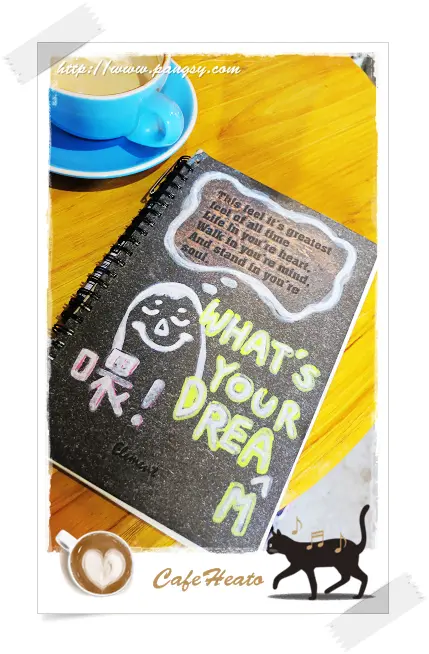 http://www.pangsy.com
This feel it's greatest
feel of all time
Life in you're heart,
Walk in you're mind,
And stand in you're
soul.
WHAT'S
YOUR
DREA
M
喂!
Element
CafeHeato